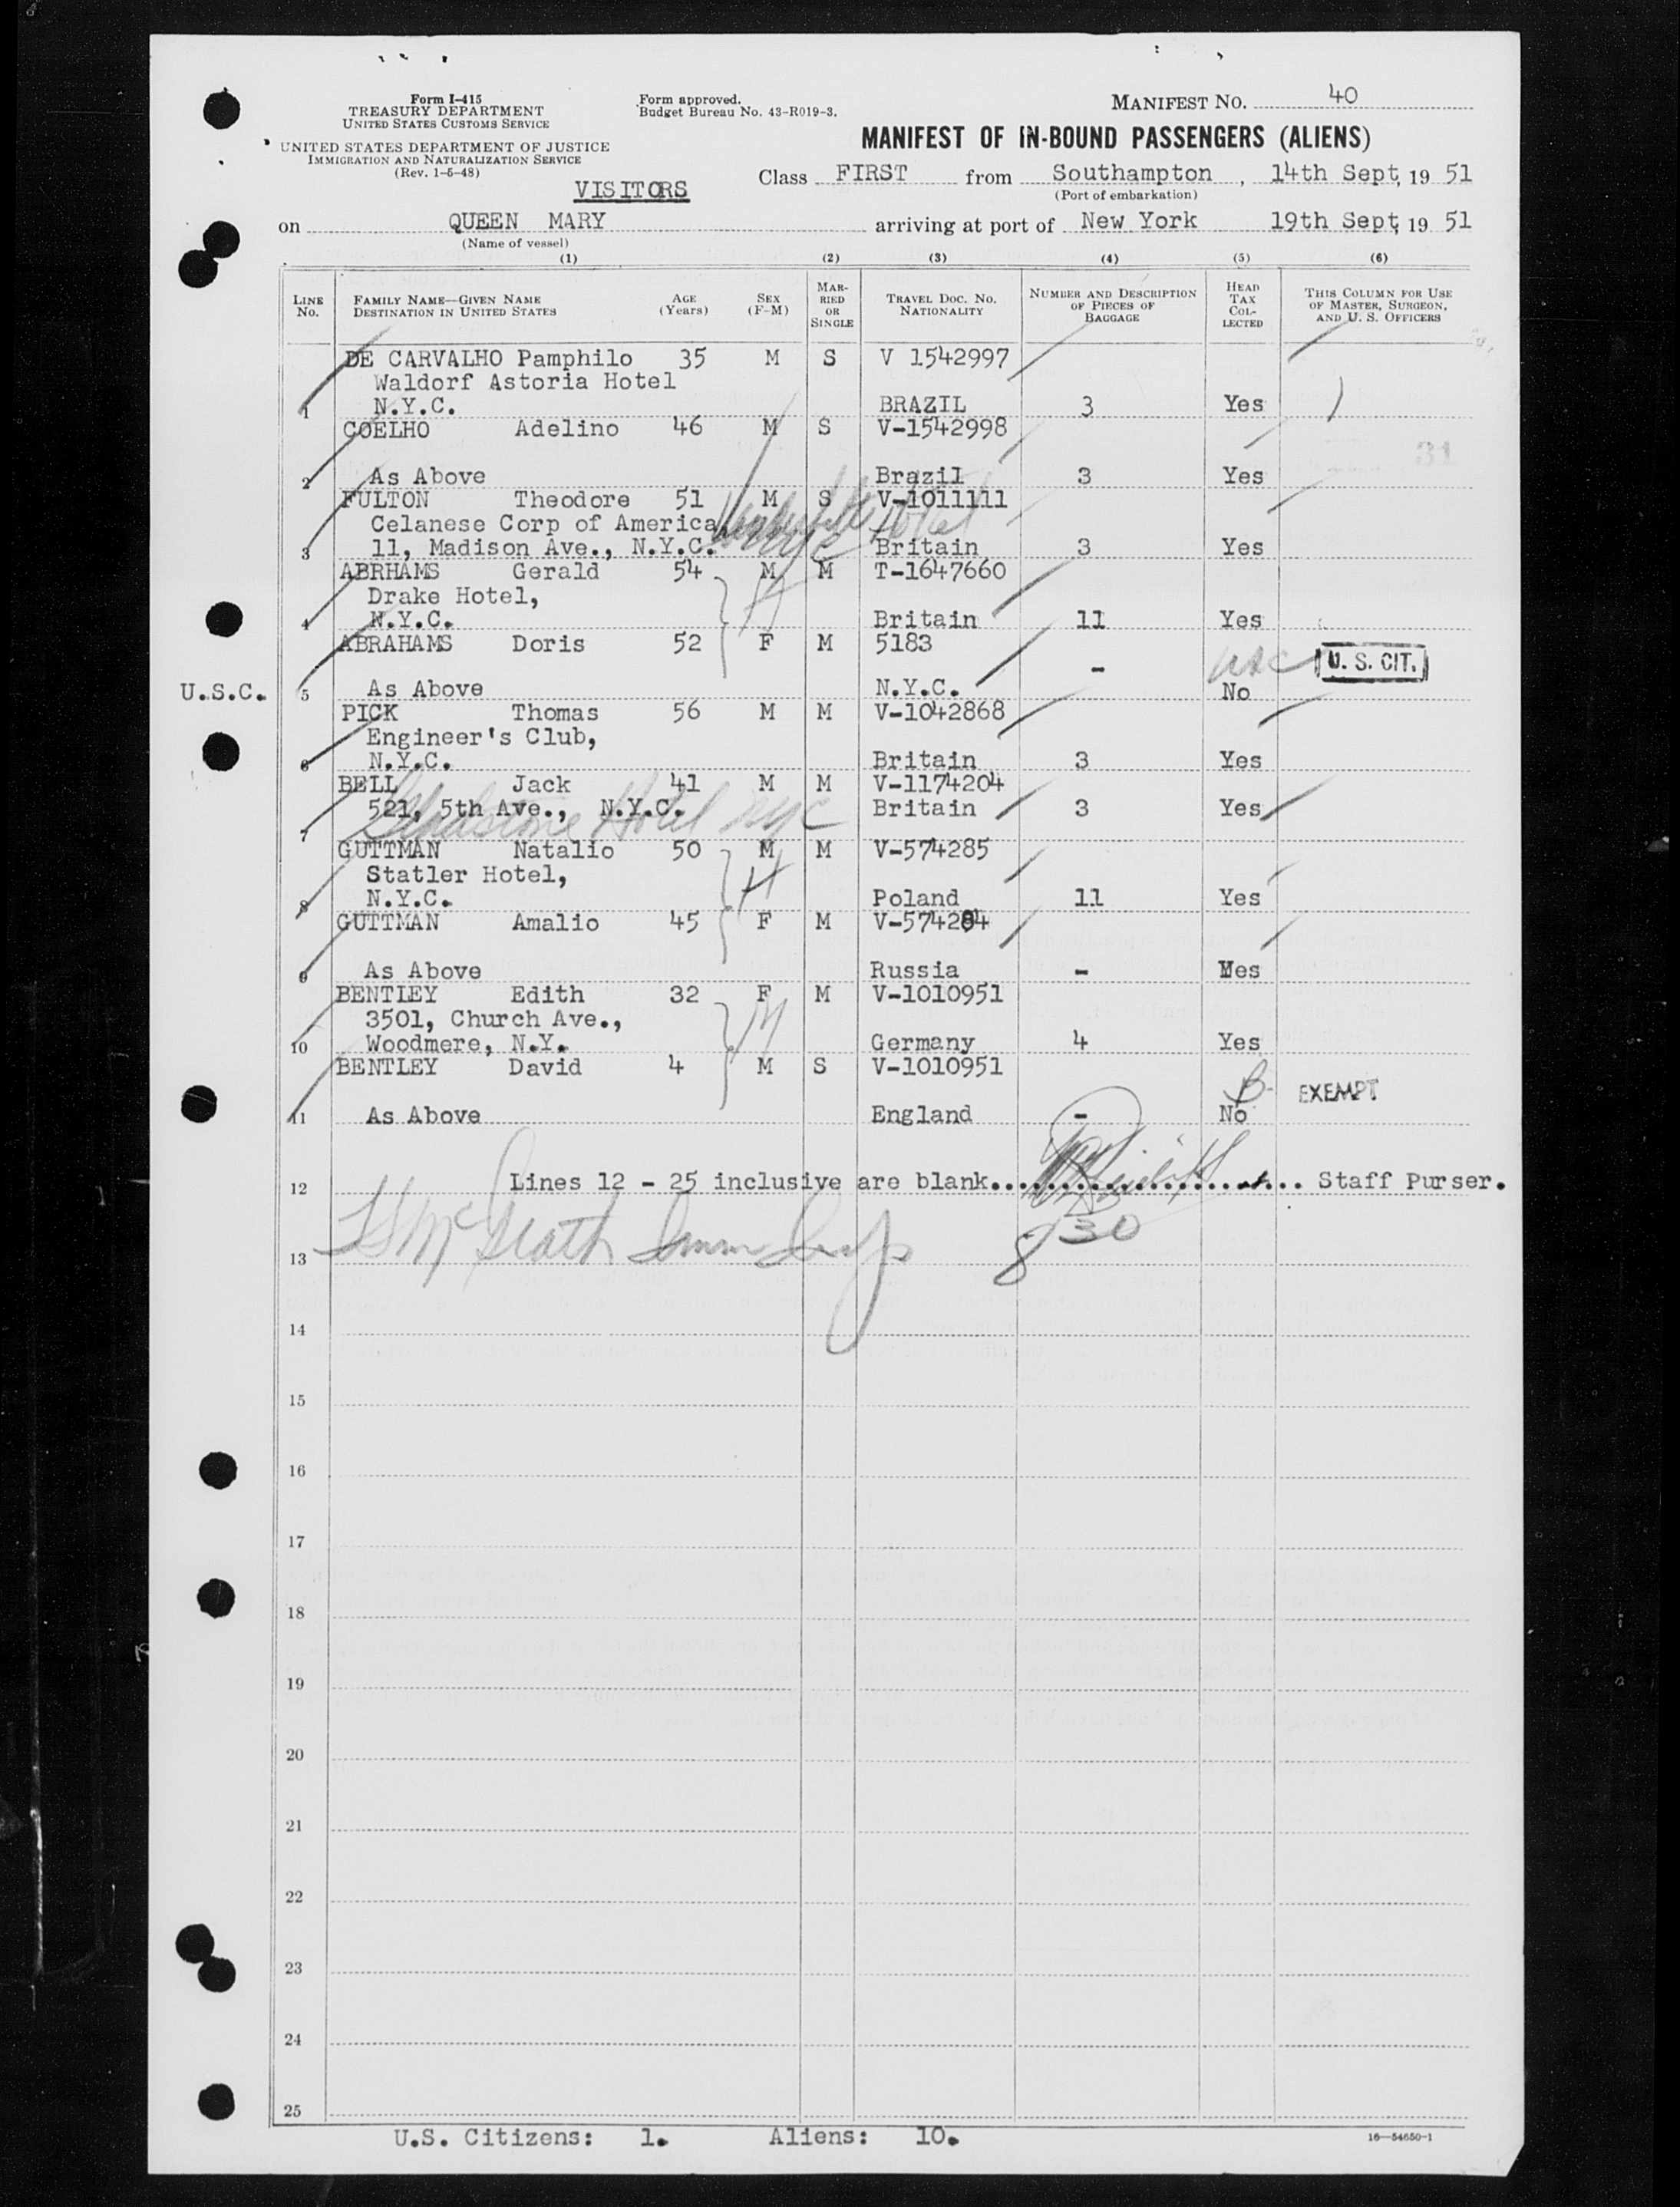 Form I-415
TREASURY DEPARTMENT
UNITED STATES CUSTOMS SERVICE
UNITED STATES DEPARTMENT OF JUSTICE
IMMIGRATION AND NATURALIZATION SERVICE
(Rev. 1-5-48)
Form approved.
Budget Bureau No. 43-R019-3.
MANIFEST NO. 40
MANIFEST OF IN-BOUND PASSENGERS (ALIENS)
VISITORS
Class FIRST from Southampton, 14th Sept, 19 51
(Port of embarkation)
on QUEEN MARY arriving at port of New York 19th Sept, 19 51
(Name of vessel)
(1) (2) (3) (4) (5) (6)
LINE No. FAMILY NAME—GIVEN NAME DESTINATION IN UNITED STATES AGE (Years) SEX (F-M) MARRIED OR SINGLE TRAVEL DOC. NO. NATIONALITY NUMBER AND DESCRIPTION OF PIECES OF BAGGAGE HEAD TAX COLLECTED THIS COLUMN FOR USE OF MASTER, SURGEON, AND U. S. OFFICERS
DE CARVALHO Pamphilo 35 M S V 1542997
Waldorf Astoria Hotel
1 N.Y.C. BRAZIL 3 Yes
COELHO Adelino 46 M S V-1542998
31
2 As Above Brazil 3 Yes
FULTON Theodore 51 M S V-1011111
Celanese Corp of America, Hotel
3 11, Madison Ave., N.Y.C. NYC Britain 3 Yes
ABRHAMS Gerald 54 M M T-1647660
Drake Hotel,
4 N.Y.C. Britain 11 Yes
ABRAHAMS Doris 52 F M 5183
USC U. S. CIT.
U.S.C. 5 As Above N.Y.C. - No
PICK Thomas 56 M M V-1042868
Engineer's Club,
6 N.Y.C. Britain 3 Yes
BELL Jack 41 M M V-1174204
521, 5th Ave., N.Y.C. Britain 3 Yes
7 Gladstone Hotel NYC
GUTTMAN Natalio 50 M M V-574285
Statler Hotel,
8 N.Y.C. Poland 11 Yes
GUTTMAN Amalio 45 F M V-574284
9 As Above Russia - Yes
BENTLEY Edith 32 F M V-1010951
3501, Church Ave.,
10 Woodmere, N.Y. Germany 4 Yes
BENTLEY David 4 M S V-1010951
EXEMPT
11 As Above England - No
12 Lines 12 - 25 inclusive are blank.......................... Staff Purser.
830
13
14
15
16
17
18
19
20
21
22
23
24
25
U.S. Citizens: 1. Aliens: 10.
16—54650-1